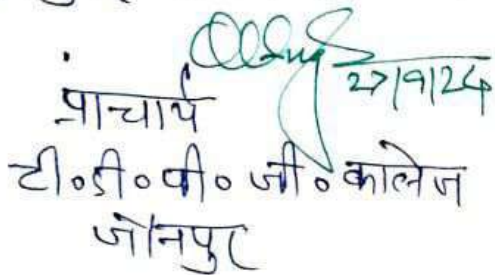 27/9/24
प्राचार्य
टी०डी०पी०जी० कालेज
जौनपुर